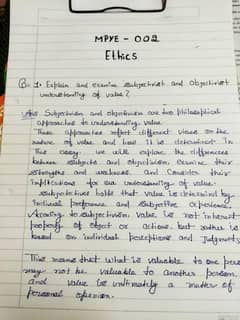 MPYE - 002
Ethics
Q= 1. Explain and examine subjectivist and objectivist
understanding of value?
Ans Subjectivism and objectivism are two philosophical
approaches to understanding value.
These approaches reflect different views on the
nature of value and how it is determined. In
this essay, we will explore the differences
between subjects and objectivism, examine their
strengths and weakness, and consider their
implications for our understanding of value.
Subjectivist holds that value is determined by
individual preference and subjective experience.
According to subjectivism value is not inherent
property of object or actions, but rather is
based on individual perceptions and Judgments
This means that what is valuable to one person
may not be valuable to another person
and value is ultimately a matter of
personal opinion.